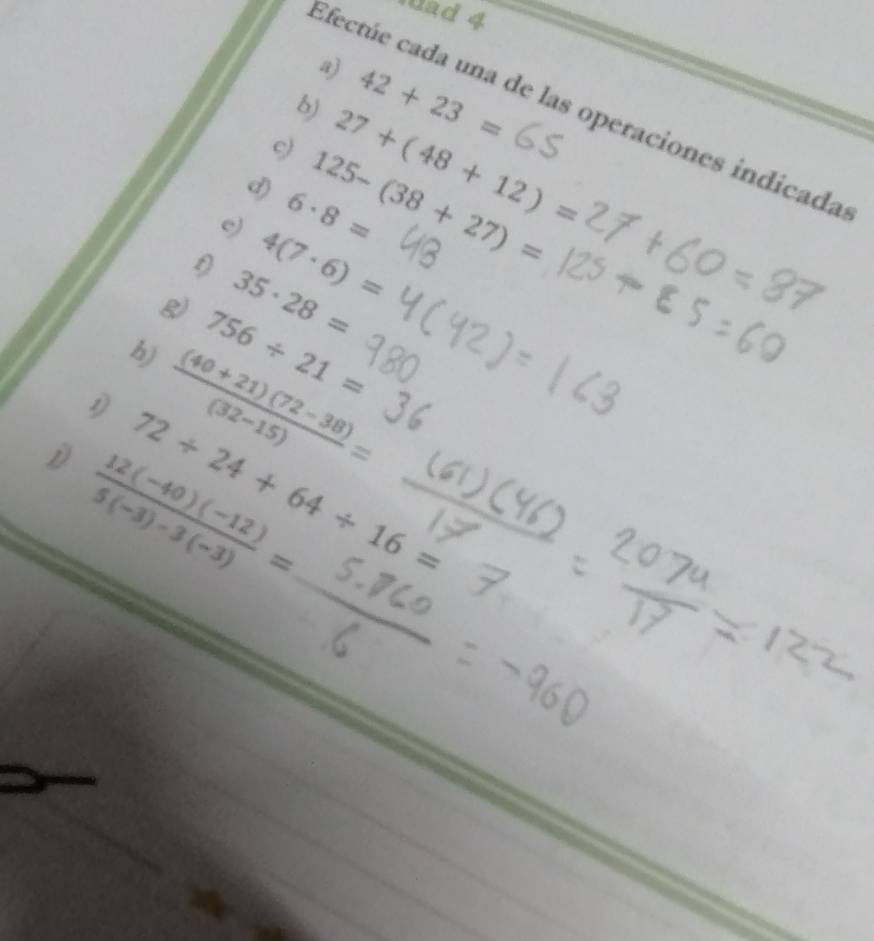 dad 4
Efectúe cada una de las operaciones indicadas
a) 42 + 23 = 65
b) 27 + (48 + 12) = 27 + 60 = 87
c) 125- (38 + 27) = 125 - 65 = 60
d) 6 · 8 = 48
e) 4(7 · 6) = 4(42) = 163
f) 35 · 28 = 980
g) 756 ÷ 21 = 36
h) (40 + 21)(72 - 38) / (32-15) = (61)(46) / 17 = 2074 / 17 = 122
i) 72 ÷ 24 + 64 ÷ 16 = 7
j) 12(-40)(-12) / 5(-3)-3(-3) = 5.760 / 6 = -960